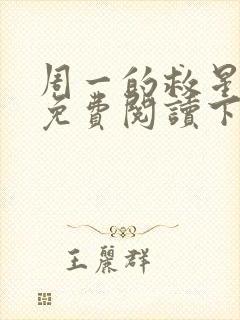 周一的救星
免費閱讀下
王麗群